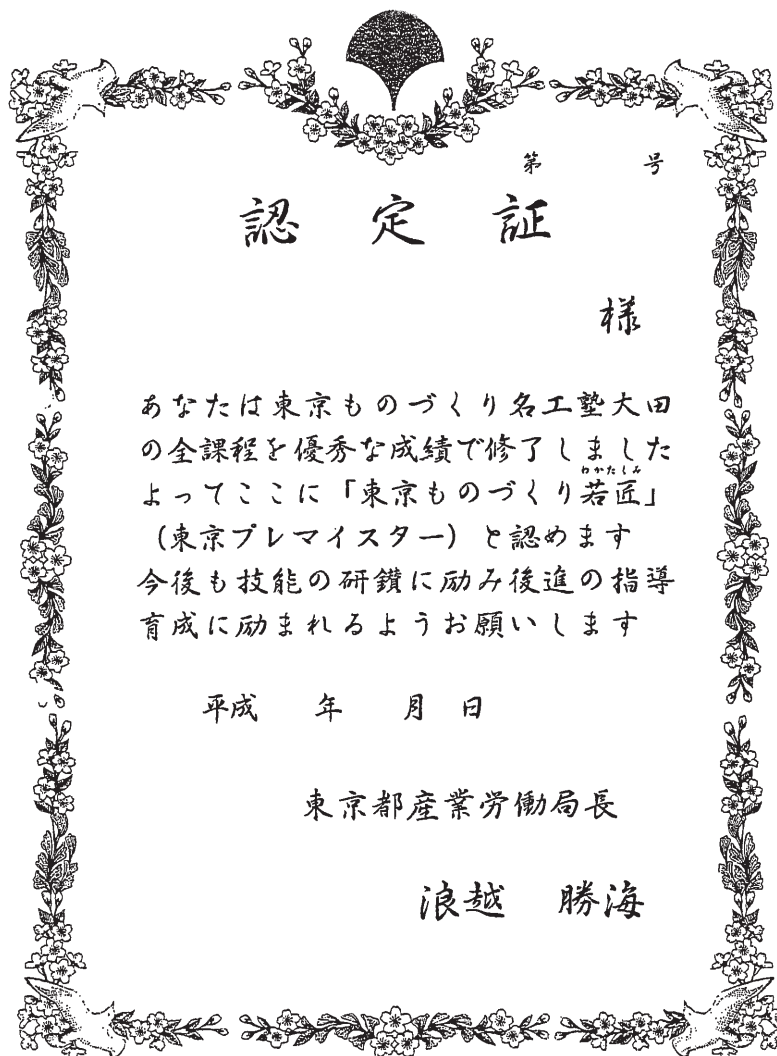 第 号
認定証
様
あなたは東京ものづくり名工塾大田
の全課程を優秀な成績で修了しました
よってここに「東京ものづくり若匠」
わかたしみ
(東京プレマイスター)と認めます
今後も技能の研鑽に励み後進の指導
育成に励まれるようお願いします
平成 年 月 日
東京都産業労働局長
浪越 勝海